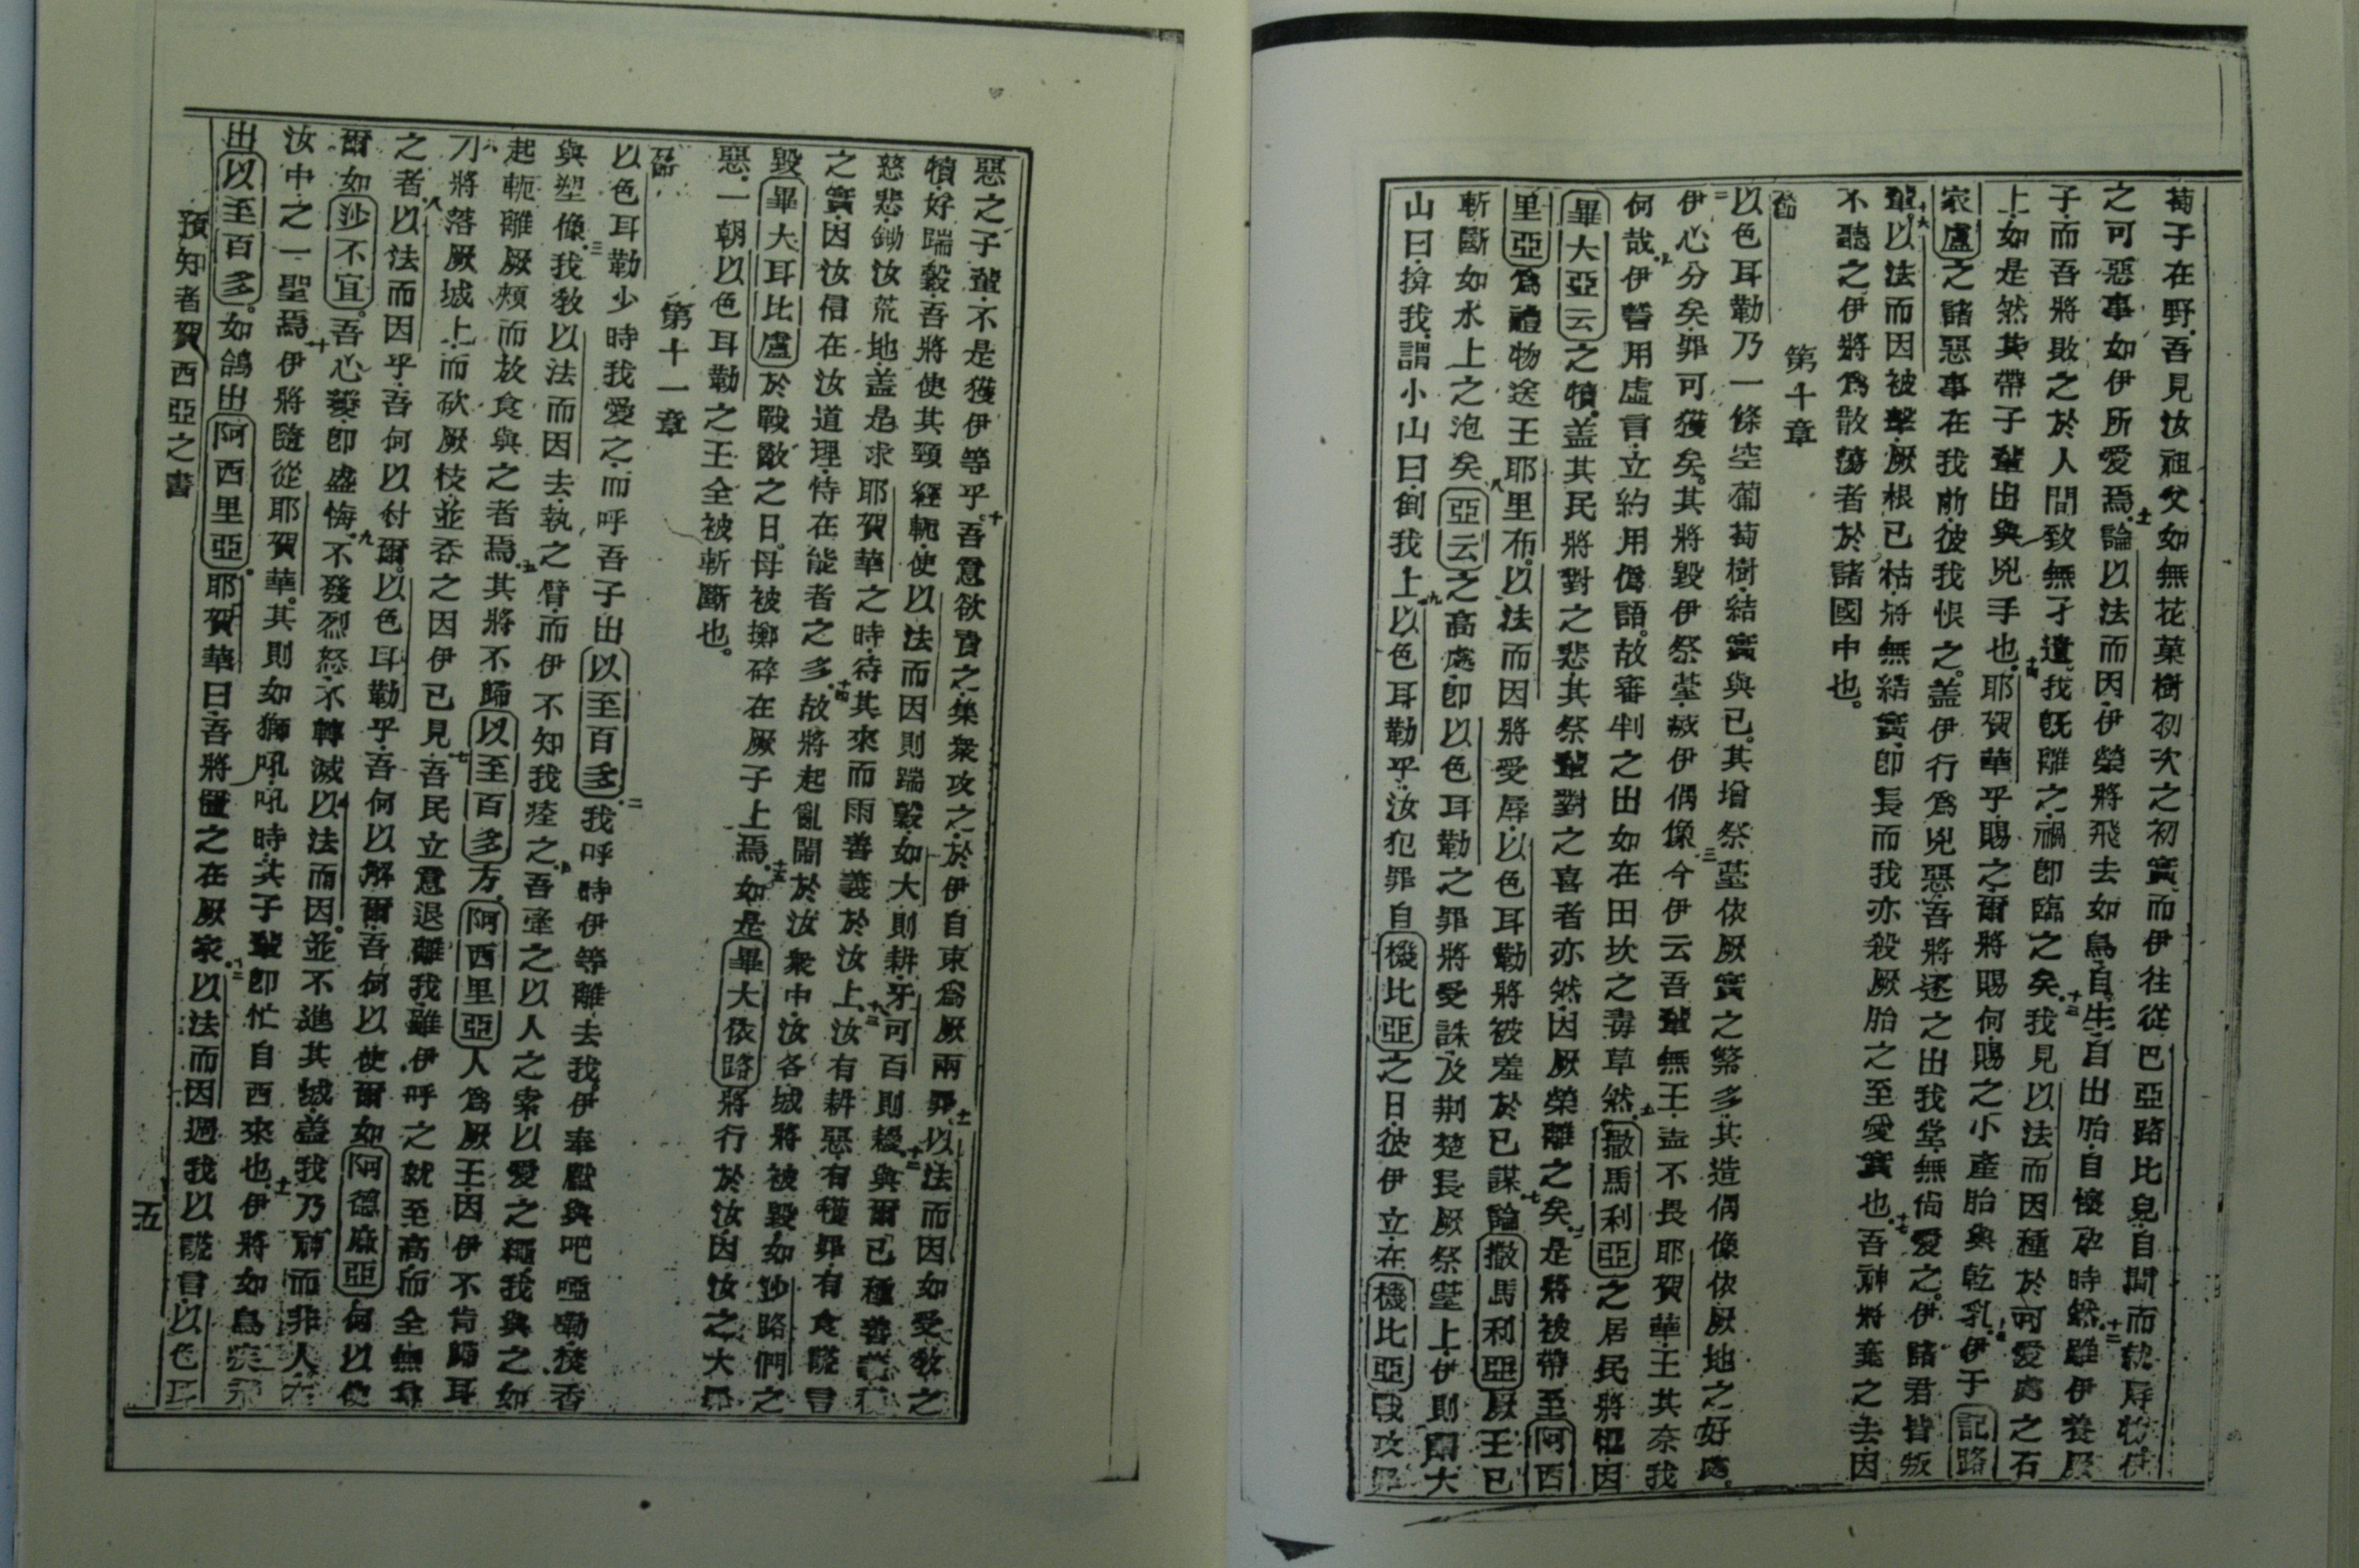 萄子在野吾見汝祖父如無花菓樹初次之初實而伊往從巴亞路比兒自間而就辱物伊
之可惡事如伊所愛焉十一論以法而因伊榮將飛去如鳥自生自出胎自懷孕時然十二雖伊養厥
子而吾將敗之於人間致無孑遺我旣離之禍卽臨之矣十三我見以法而因種於可愛處之石
上如是然其帶子輩出與兇手也十四耶賀華乎賜之爾將賜何賜之小產胎與乾乳十五伊于記路
家盧之諸惡事在我前彼我恨之蓋伊行爲兇惡吾將逐之出我堂無尙愛之伊諸君皆叛
輩十六以法而因被擊厥根已枯將無結實卽長而我亦殺厥胎之至愛實也十七吾神將棄之去因
不聽之伊將爲散蕩者於諸國中也
第十章
一節
以色耳勒乃一條空葡萄樹結實與已其增祭壇依厥實之繁多其造偶像依厥地之好處
二伊心分矣罪可獲矣其將毀伊祭壇滅伊偶像三今伊云吾輩無王蓋不畏耶賀華王其奈我
何哉四伊誓用虛言立約用僞語故審判之出如在田坎之毒草然五撒馬利亞之居民將懼因
畢大亞云之犢蓋其民將對之悲其祭輩對之喜者亦然因厥榮離之矣六是將被帶至阿西
里亞爲禮物送王耶里布以法而因將受辱以色耳勒將被羞於已謀論七撒馬利亞厥王已
斬斷如水上之泡矣八亞云之高處卽以色耳勒之罪將受誅及荆楚長厥祭壇上伊則謂大
山曰揜我謂小山曰倒我上九以色耳勒乎汝犯罪自機比亞之日彼伊立在機比亞戰攻兇
惡之子輩不是獲伊等乎十吾意欲責之集衆攻之於伊自束爲厥兩罪十一以法而因如受敎之
犢好踹穀吾將使其頸經軛使以法而因則踹穀如大則耕牙可百則耰與爾十二已種善義穫
慈悲鋤汝荒地蓋是求耶賀華之時待其來而雨善義於汝上十三汝有耕惡有穫罪有食謊言
之實因汝信在汝道理恃在能者之多十四故將起亂鬧於汝衆中汝各城將被毀如沙路們之
毀畢大耳比盧於戰敵之日母被擲碎在厥子上焉十五如是畢大依路將行於汝因汝之大兇
惡一朝以色耳勒之王全被斬斷也
第十一章
一節
以色耳勒少時我愛之而呼吾子出以至百多二我呼時伊等離去我伊奉獻與吧啞嘞焚香
與塑像三我敎以法而因去執之臂而伊不知我痊之四吾牽之以人之索以愛之繩我與之如
起軛離厥頰而放食與之者焉五其將不歸以至百多方阿西里亞人爲厥王因伊不肯歸耳
六刀將落厥城上而砍厥枝並吞之因伊已見七吾民立意退離我雖伊呼之就至高而全無尊
之者八以法而因乎吾何以付爾以色耳勒乎吾何以解爾吾何以使爾如阿德麻亞何以使
爾如沙不宜吾心變卽盛悔九不發烈怒不轉滅以法而因並不進其城蓋我乃神而非人在
汝中之一聖焉十伊將隨從耶賀華其則如獅吼吼時其子輩卽忙自西來也十一伊將如鳥疾
出以至百多如鴿出阿西里亞耶賀華曰吾將置之在厥家十二以法而因週我以謊言以色耳
預知者賀西亞之書
五